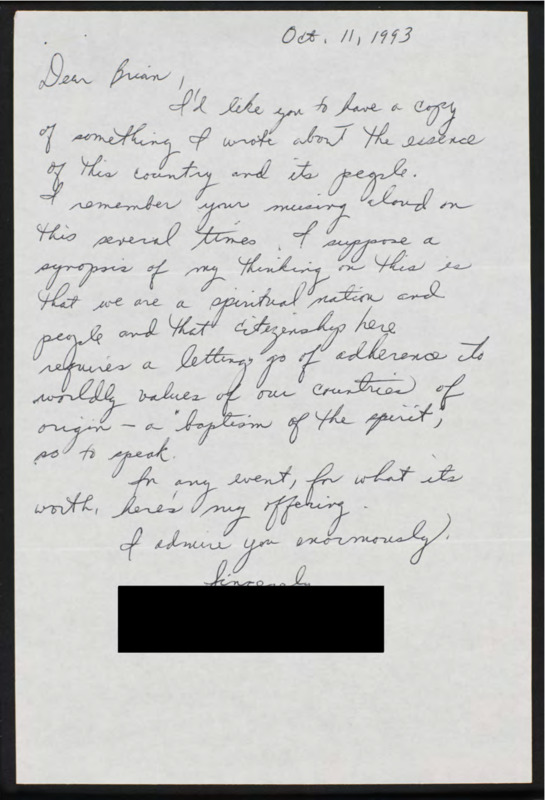 Oct. 11, 1993
Dear Brian,
I'd like you to have a copy
of something I wrote about the essence
of this country and its people.
I remember your musing aloud on
this several times. I suppose a
synopsis of my thinking on this is
that we are a spiritual nation and
people and that citizenship here
requires a letting go of adherence to
worldly values of our countries of
origin – a "baptism of the spirit",
so to speak.
In any event, for what its
worth, here's my offering.
I admire you enormously.
Sincerely